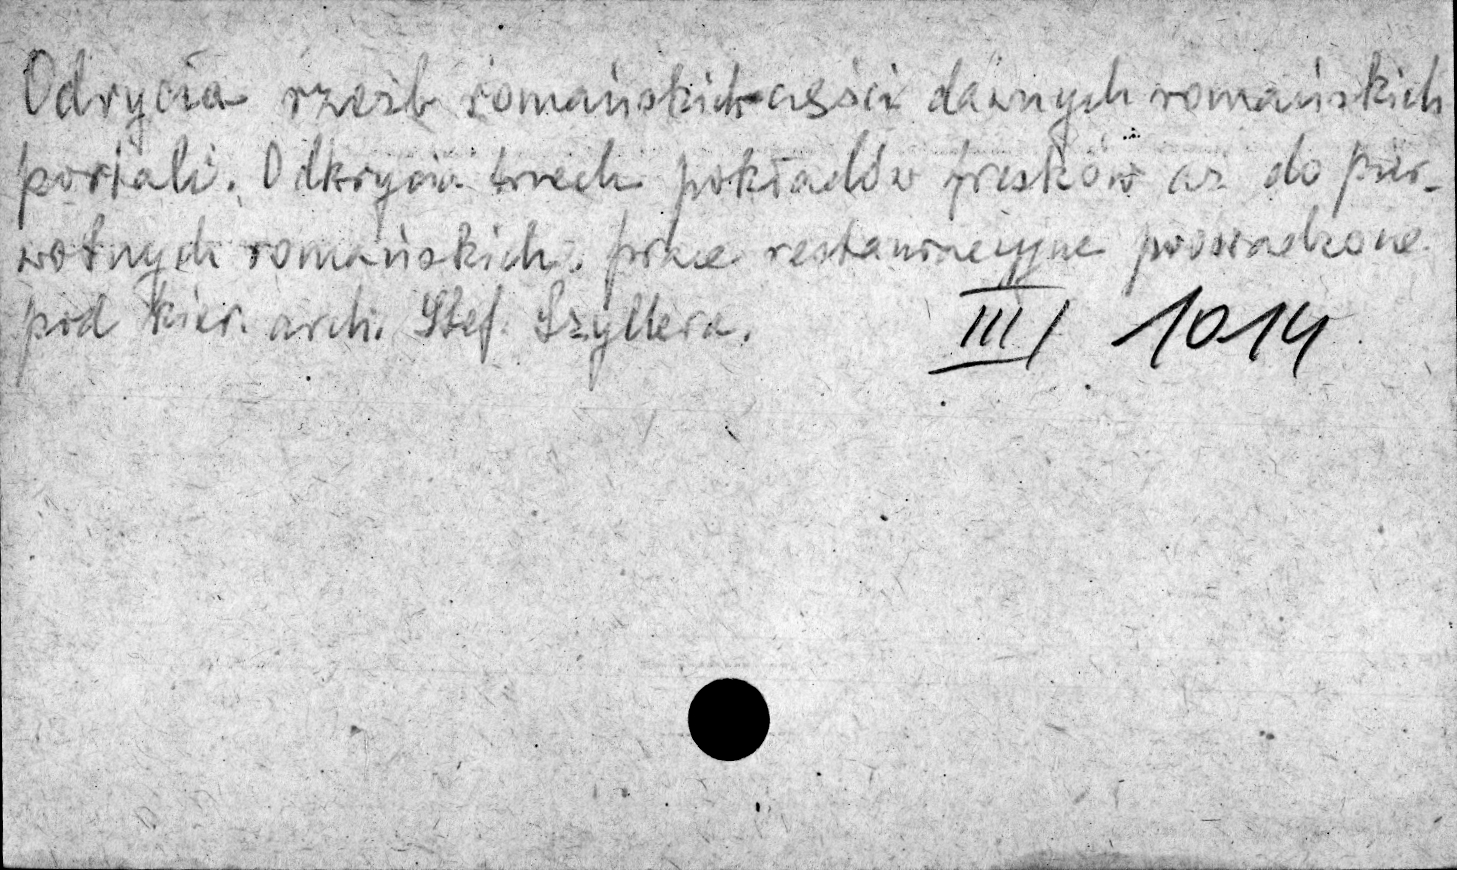 Odrycia rzeźb romańskich części dawnych romańskich
portali. Odkrycia trzech pokładów fresków aż do pier-
wotnych romańskich. Prace restauracyjne prowadzone
pod kier. arch. Stef. Szyllera. III/ 1014